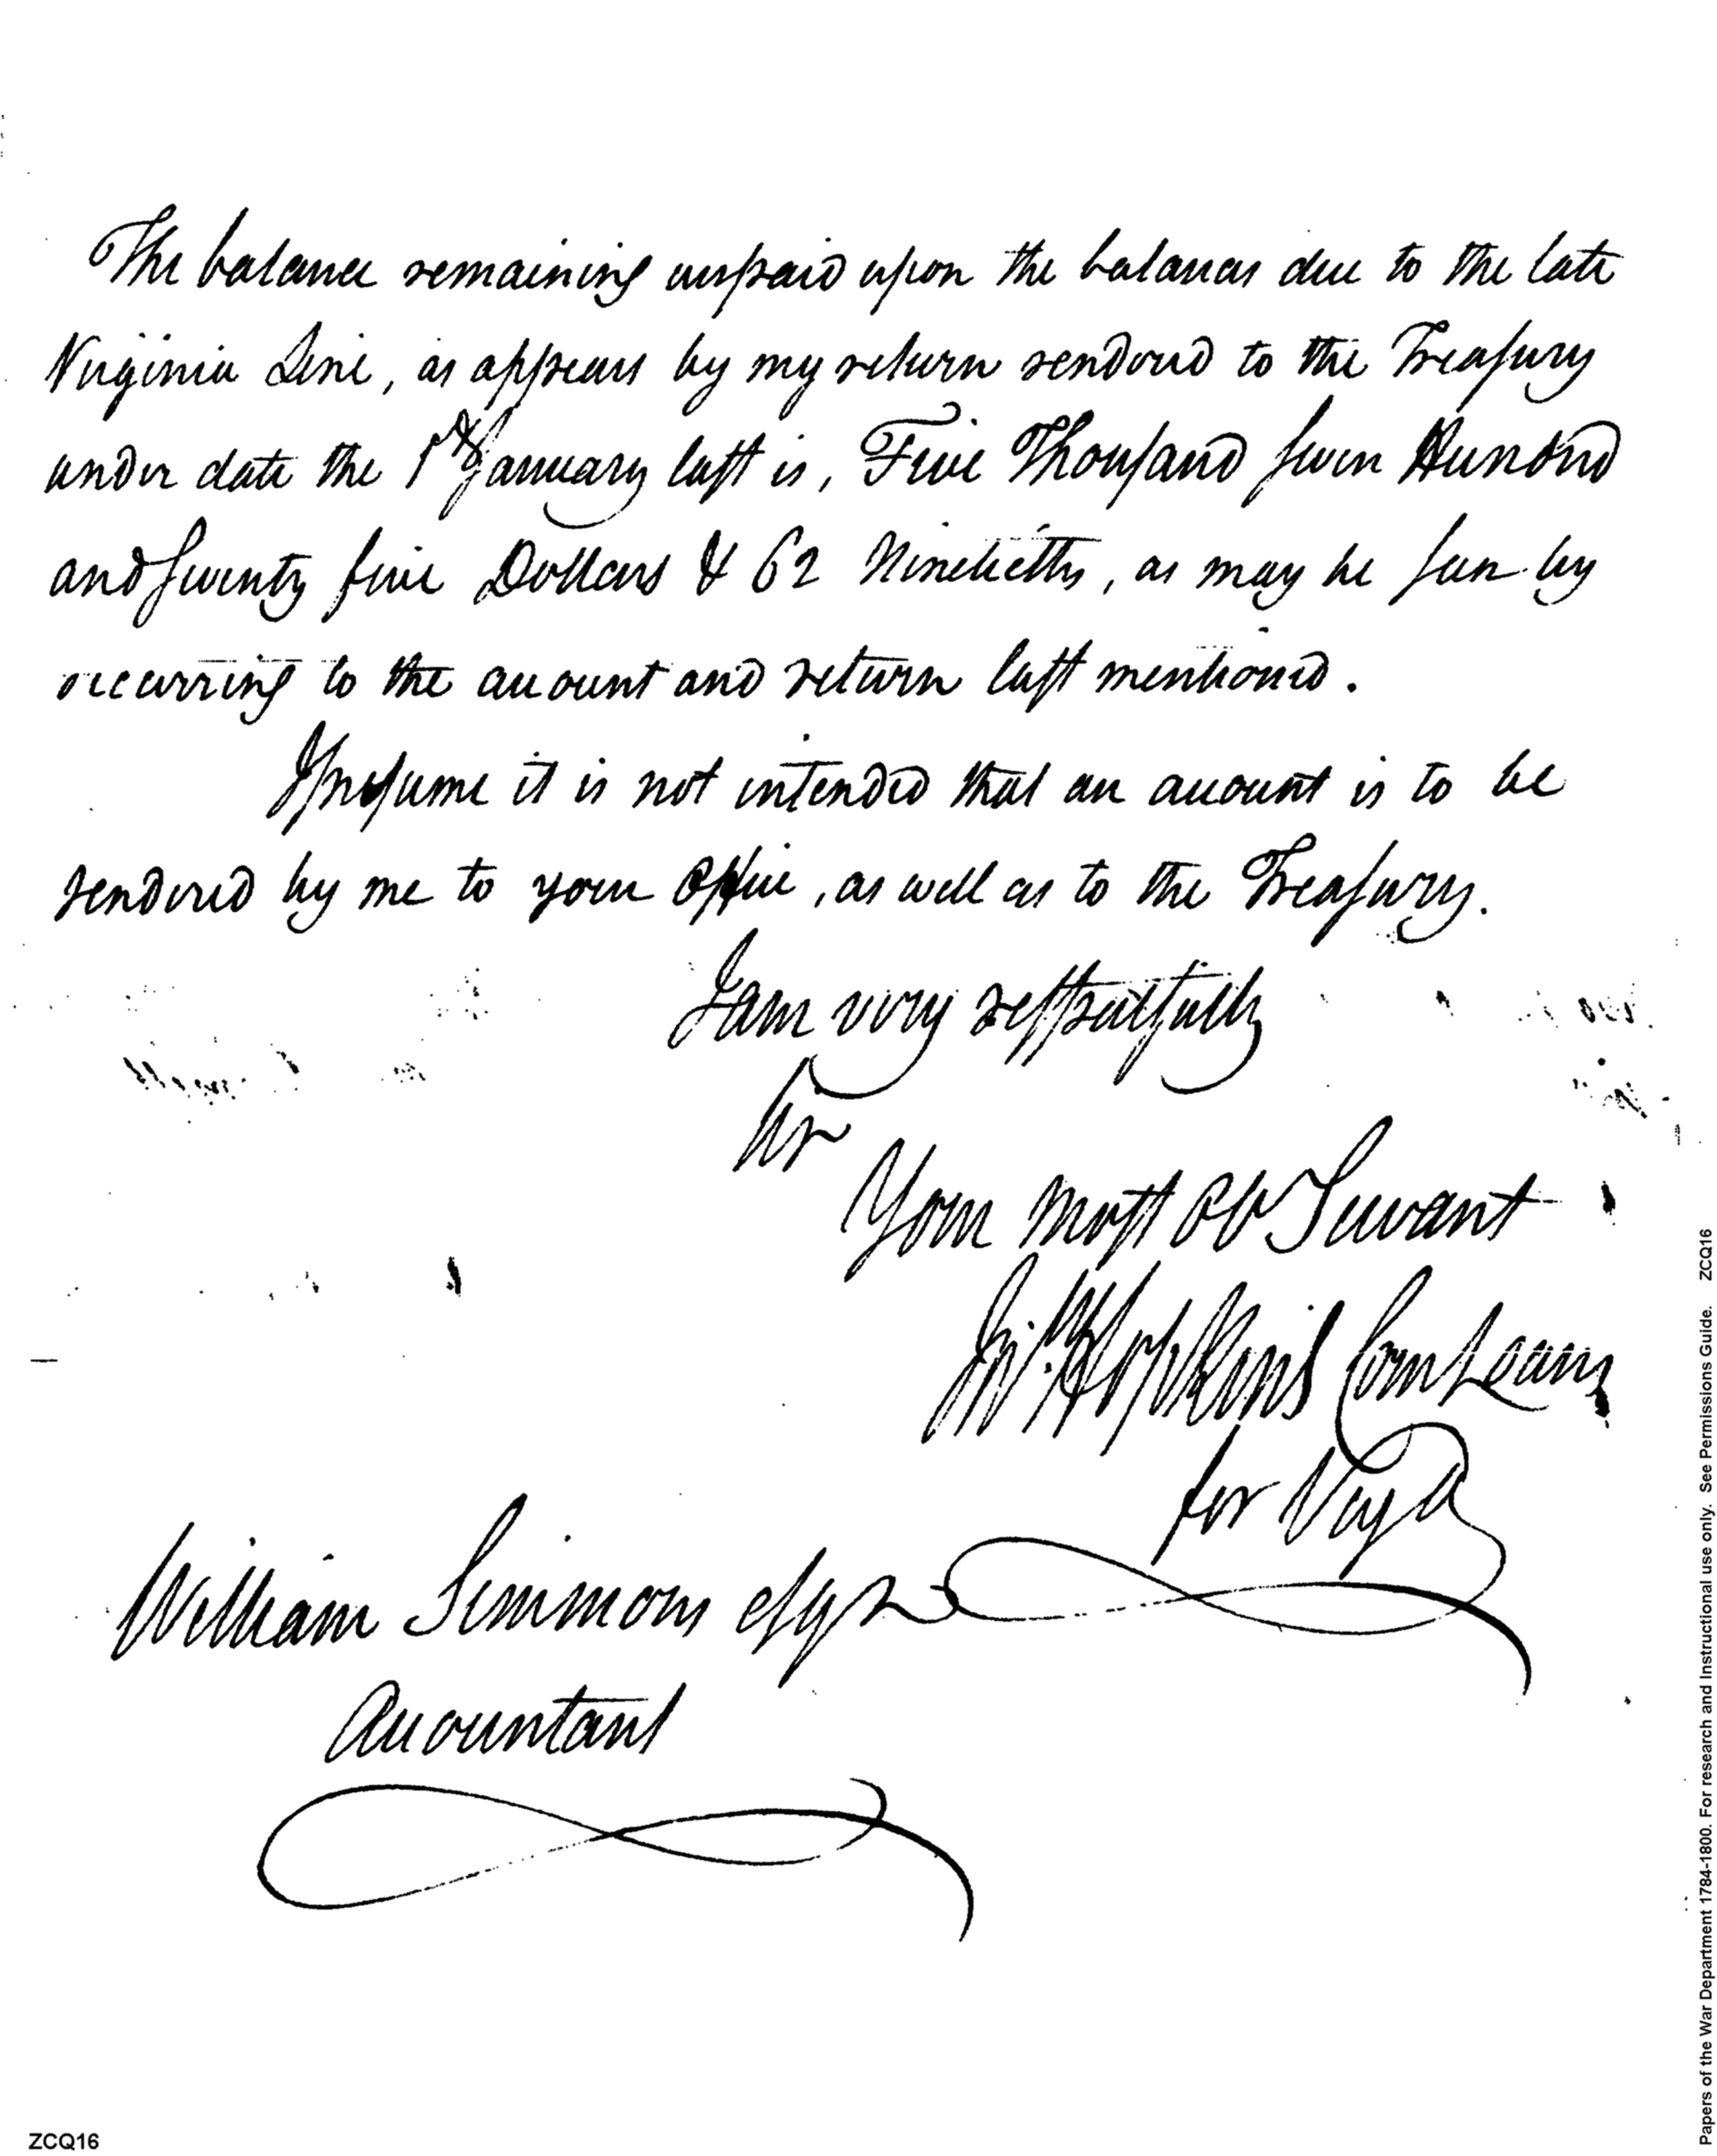 The balance remaining unpaid upon the balances due to the late
Virginia Line, as appears by my return rendered to the Treasury
under date the 1st January last is, Five Thousand seven Hundred
and seventy five Dollars & 62 Ninetieths, as may be seen by
occurring to the account and return last mentioned.
I presume it is not intended that an account is to be
rendered by me to your Office, as well as to the Treasury.
I am very respectfully
Sir
Your most Ob Servant
Jn. Hopkins Com Loans
for Virga
William Simmons esqr
Accountant
ZCQ16
Papers of the War Department 1784-1800. For research and Instructional use only. See Permissions Guide. ZCQ16